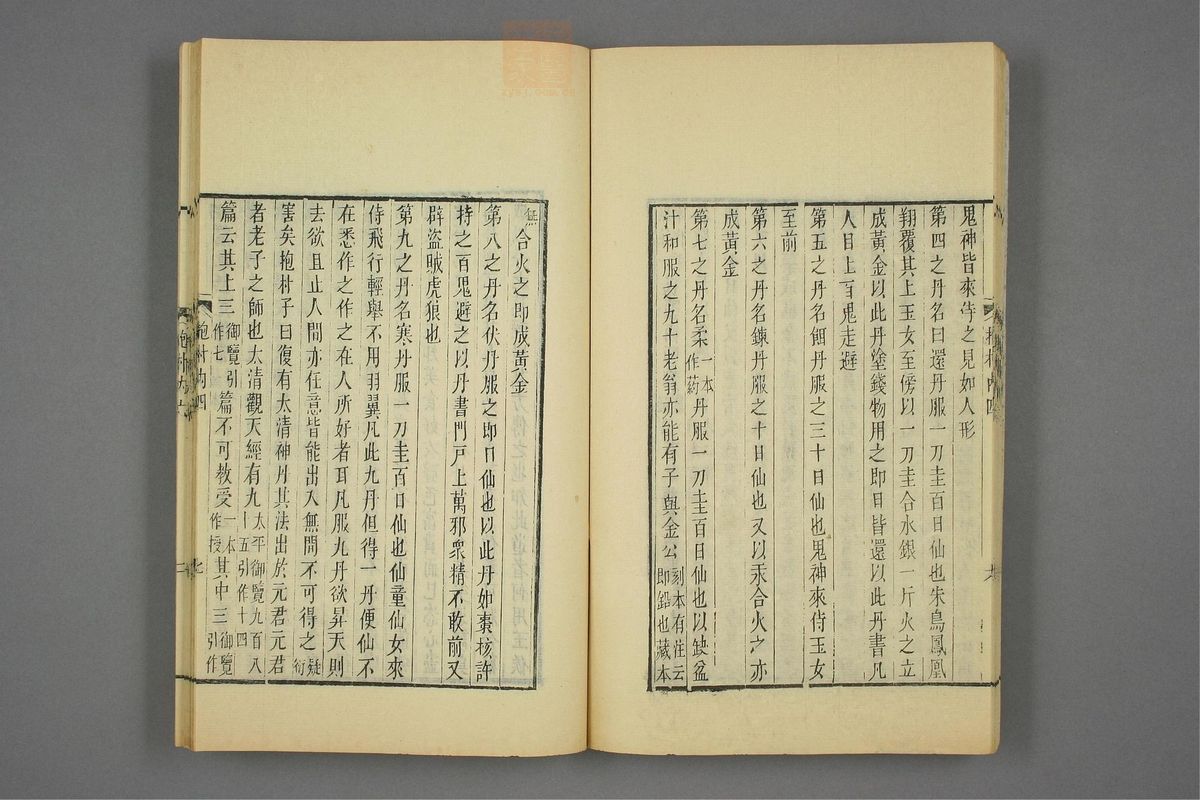 鬼神皆來侍之見如人形
第四之丹名曰還丹服一刀圭百日仙也朱鳥鳳凰
翔覆其上玉女至傍以一刀圭合水銀一斤火之立
成黃金以此丹塗錢物用之即日皆還以此丹書凡
人目上百鬼走避
第五之丹名餌丹服之三十日仙也鬼神來侍玉女
至前
第六之丹名鍊丹服之十日仙也又以汞合火之亦
成黃金
第七之丹名柔一本作药丹服一刀圭百日仙也以缺盆
汁和服之九十老翁亦能有子與金公刻本有注云即鉛也藏本
無合火之即成黃金
第八之丹名伏丹服之即日仙也以此丹如棗核許
持之百鬼避之以丹書門戸上萬邪衆精不敢前又
辟盜賊虎狼也
第九之丹名寒丹服一刀圭百日仙也仙童仙女來
侍飛行輕舉不用羽翼凡此九丹但得一丹便仙不
在悉作之作之在人所好者耳凡服九丹欲昇天則
去欲且止人間亦任意皆能出入無間不可得之疑衍
害矣抱朴子曰復有太清神丹其法出於元君元君
者老子之師也太清觀天經有九太平御覽九百八十五引作十四
篇云其上三御覽引作七篇不可教受一本作授其中三御覽引作
抱朴内四
七